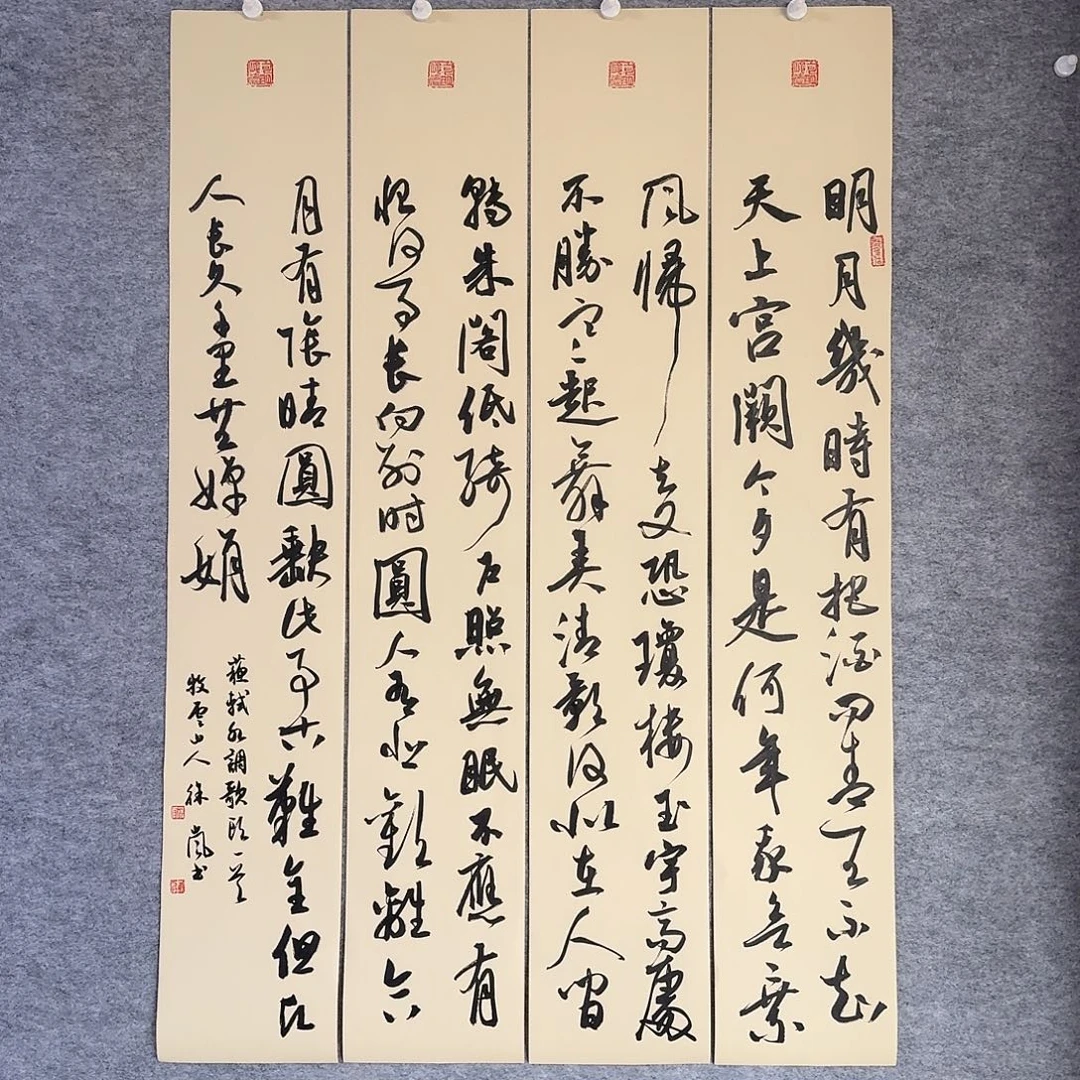 明月幾時有把酒問青天不知
天上宮闕今夕是何年我欲乘
風歸去又恐瓊樓玉宇高處
不勝寒起舞弄清影何似在人間
轉朱閣低綺戶照無眠不應有
恨何事長向別时圓人有悲歡離合
月有陰晴圓缺此事古難全但願
人長久千里共嬋娟
蘇軾水調歌頭一首
牧雲山人徐嵐書